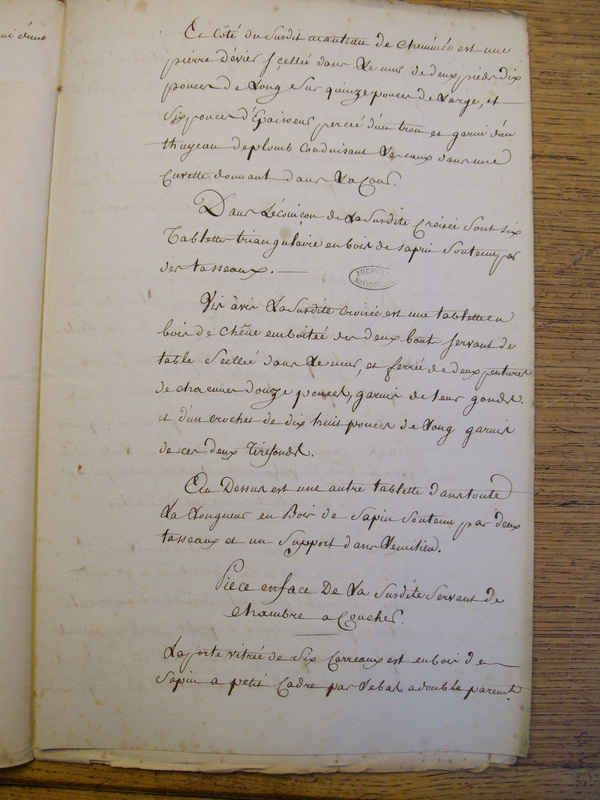 A Coté du Surdit manteau de cheminée est une
pierre d'évier scellée dans Le mur de deux pieds dix
pouces de Long Sur quinze pouces de Large, et
Six pouces d'Epaisseur percée d'un trou et garni d'un
thuyeau de plomb conduisant Les eaux dans une
Cuvette donnant dans La Cour.
Dans L'écoinçon de La Surdite Croisée Sont six
Tablettes triangulaire en bois de sapin Soutenu par
des tasseaux.
ARCHIVES NATIONALES
Vis avis La Surdite Croisée est une tablette en
bois de chêne emboitée des deux bout servant de
table Scellié dans Le mur, et ferrée de deux pentures
de chacunes douze pouces, garnis de leur gonds.
et d'un crochet de dix huit pouces de Long garnis
de ces deux Tirefonds.
Au Dessus est une autre tablette dans toute
La Longueur en Bois de Sapin Soutenu par deux
tasseaux et un Support dans Lemilieu.
Piece en face De La Surdite Servant de
chambre a Coucher.
La porte vitrée de Six Carreaux est en bois de
Sapin a petit Cadre par Lebas a double parement